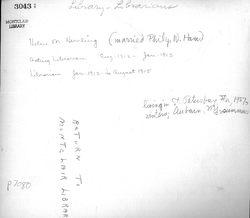 3043
MONTCLAIR
LIBRARY
Library - Librarians
Helen M. (married Philip W. )
Acting Librarian Aug. 1912 - Jan. 1913
Librarian Jan 1913 to August 1915
Living in St. Petersburg Fla, 1957.
Auburn,
RETURN TO
MONTCLAIR LIBRARY
p7080